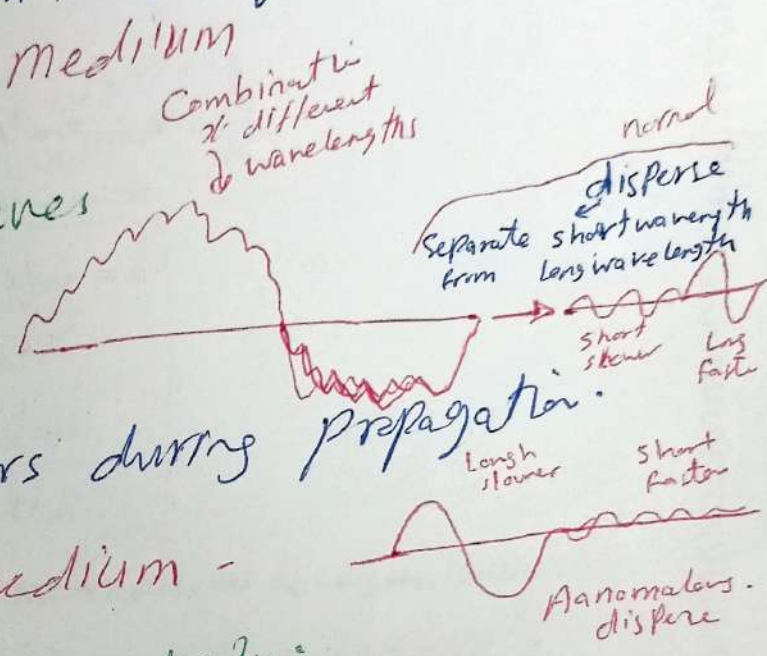 medium
Combinati
different
wavelengths
normal
disperse
Separate short wavength
from Longwavelength
Short
slower
Long
faste
rs during propagation.
Longh
slower
Short
faster
edium -
Aanomalous.
dispere